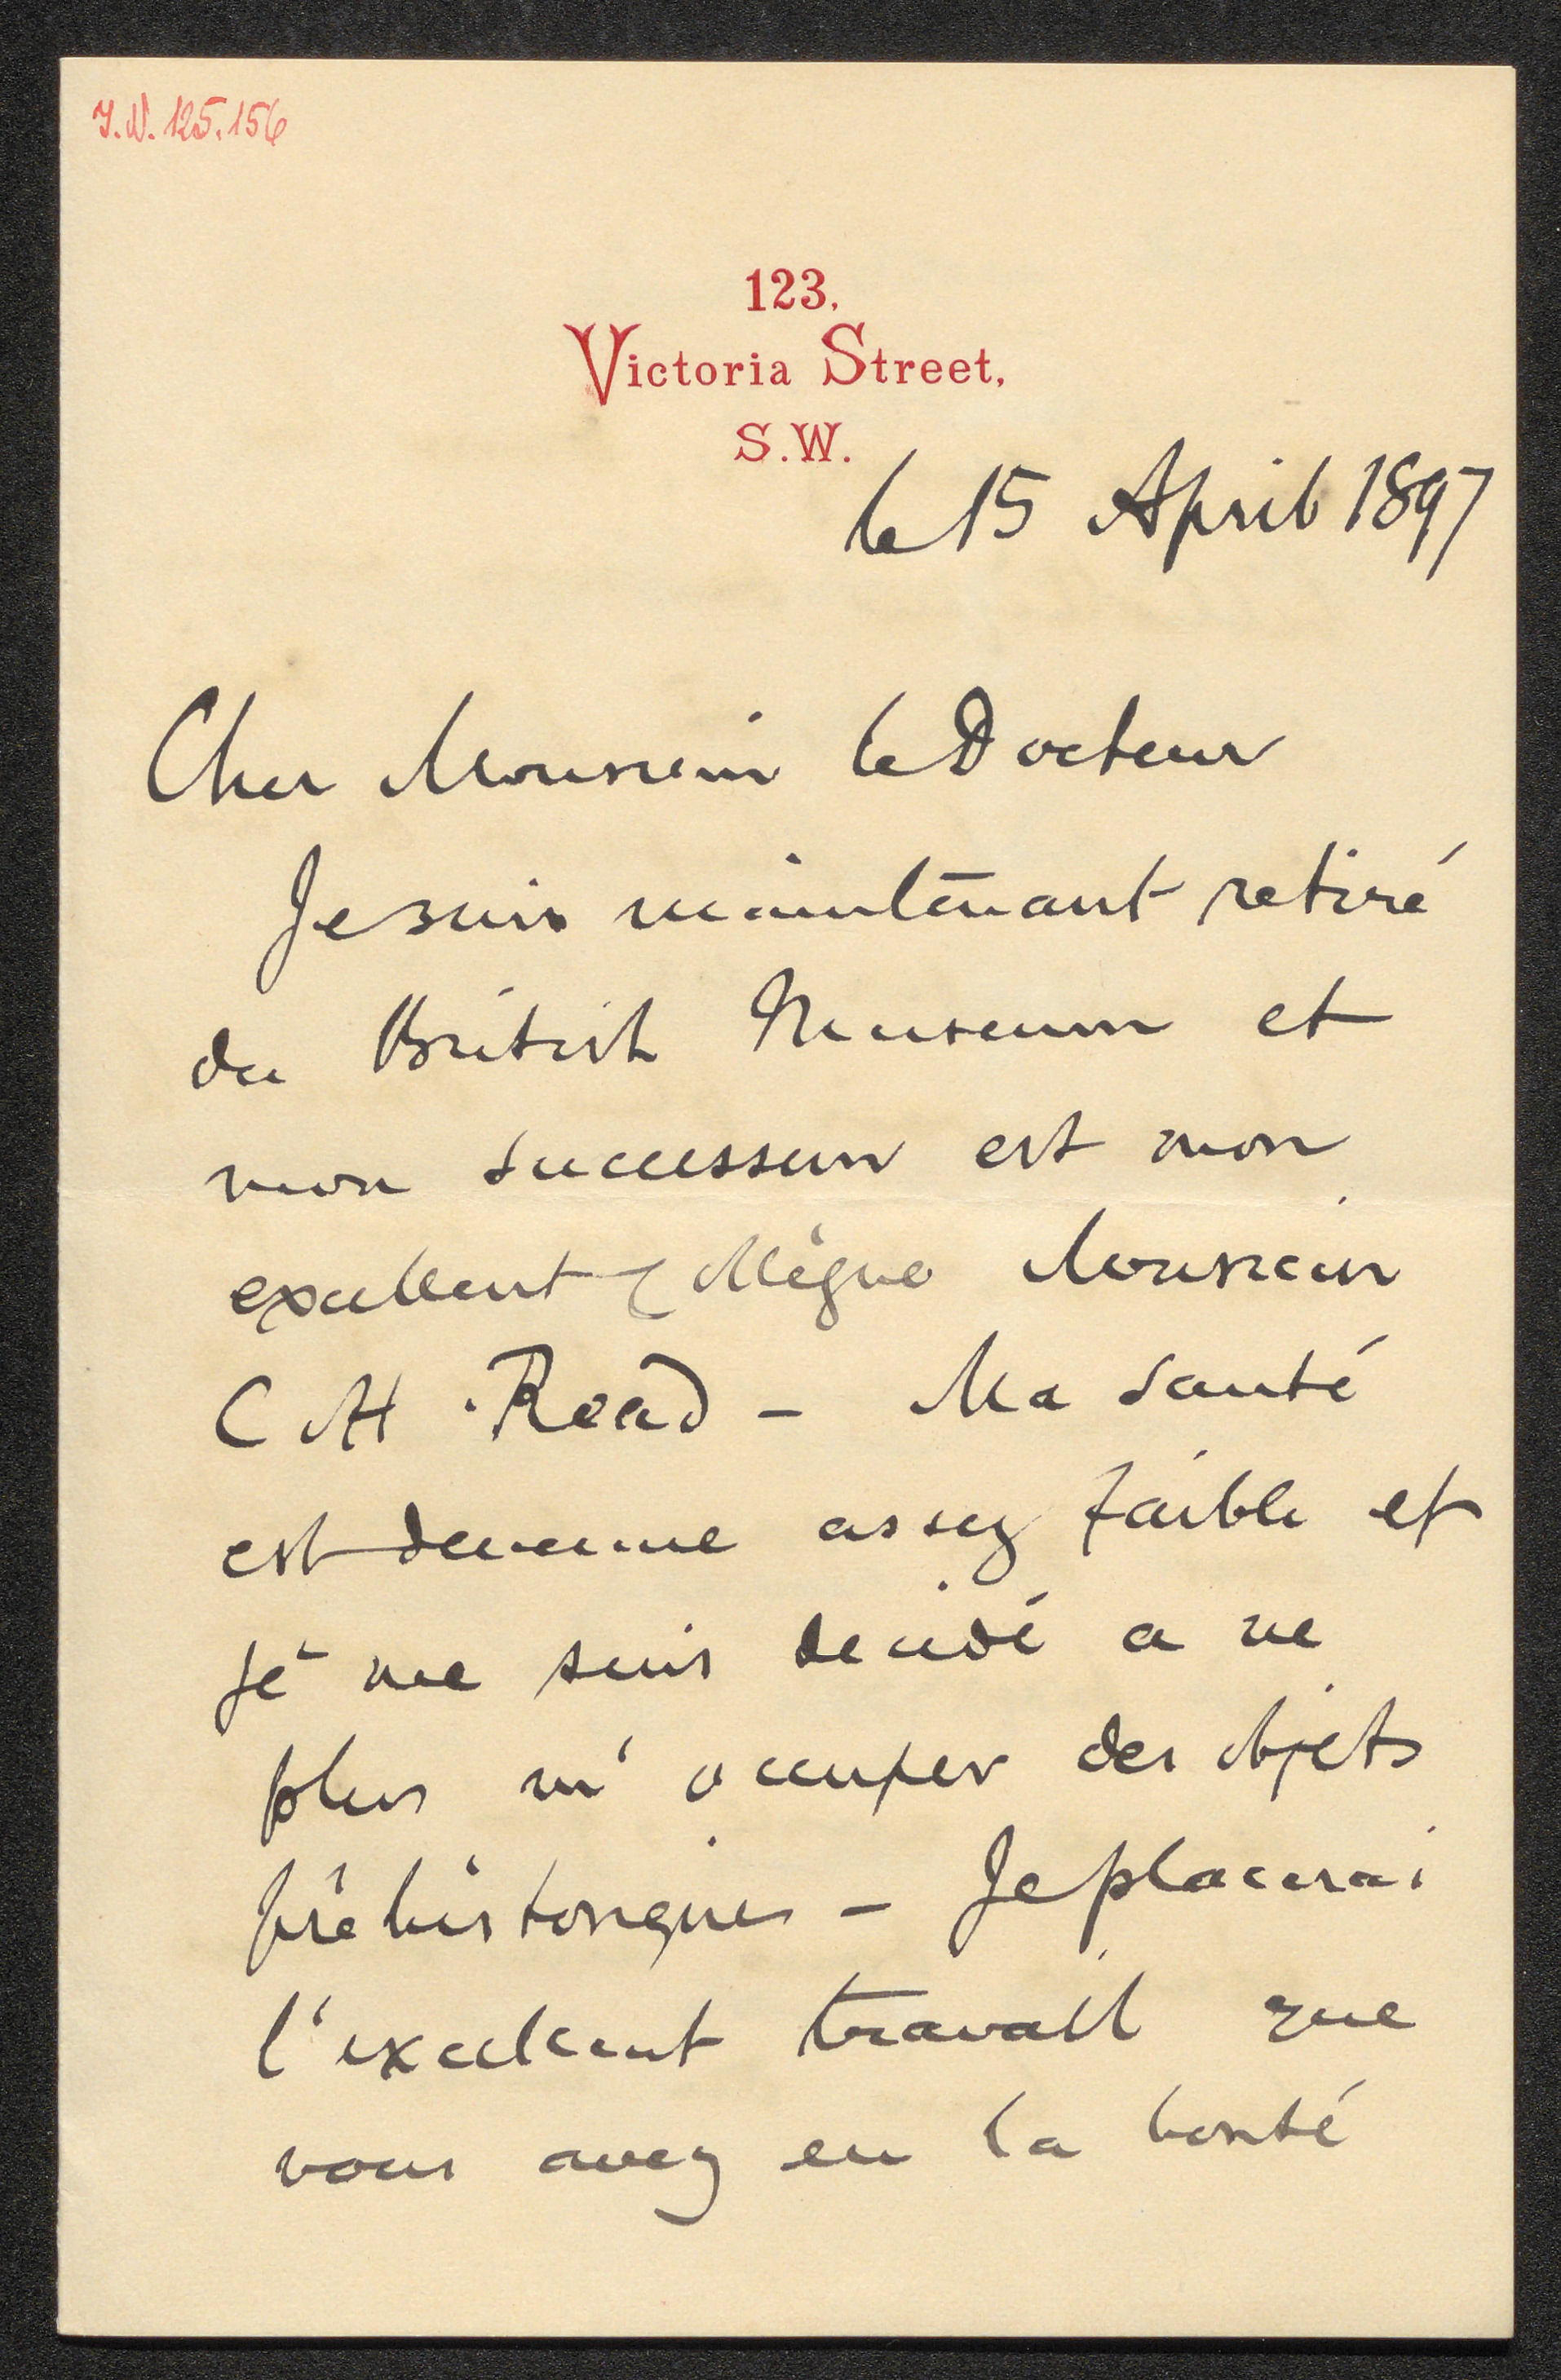 I.N. 125.156
123,
Victoria Street,
S.W.
le 15 April 1897
Cher Monsieur le Docteur
Je suis maintenant retiré
du British Museum et
mon successeur est mon
excellent collègue Monsieur
C H. Read - Ma santé
est devenue assez faible et
je me suis decidé a ne
plus m'occuper des objets
préhistoriques - Je placerai
l'excellent travail que
vous avez eu la bonté